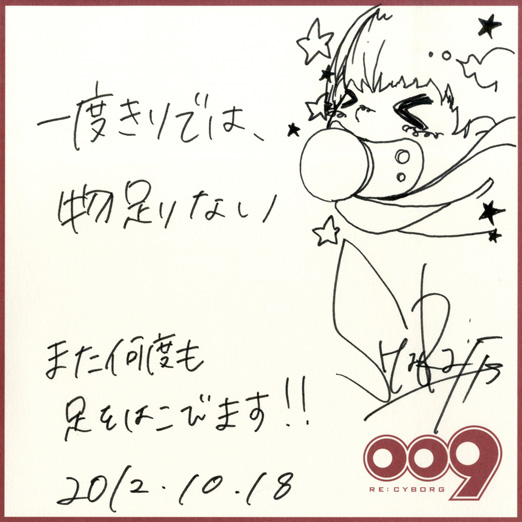 一度きりでは、
物足りない
また何度も
足をはこびます!!
2012.10.18
009
RE:CYBORG